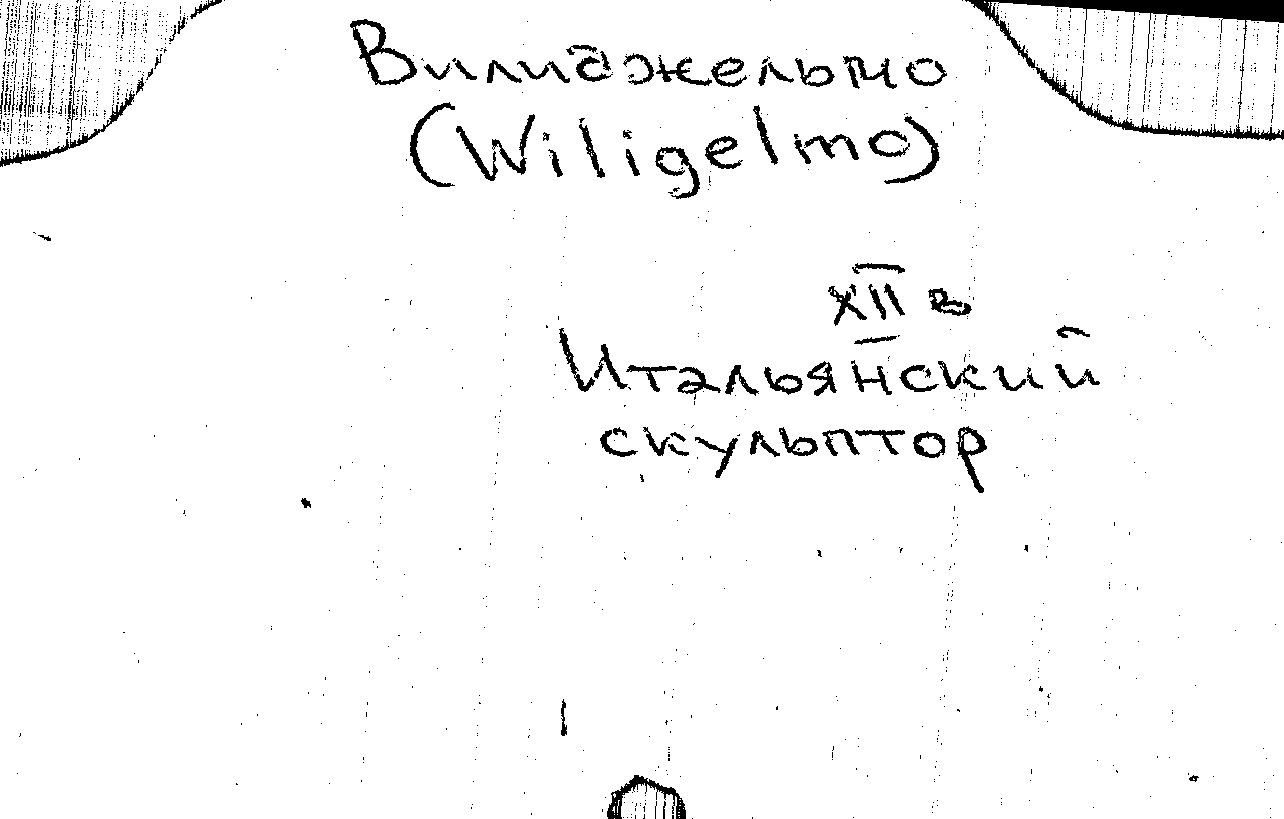 Вилиджельмо
(Wiligelmo)
XII в
Итальянский
скульптор